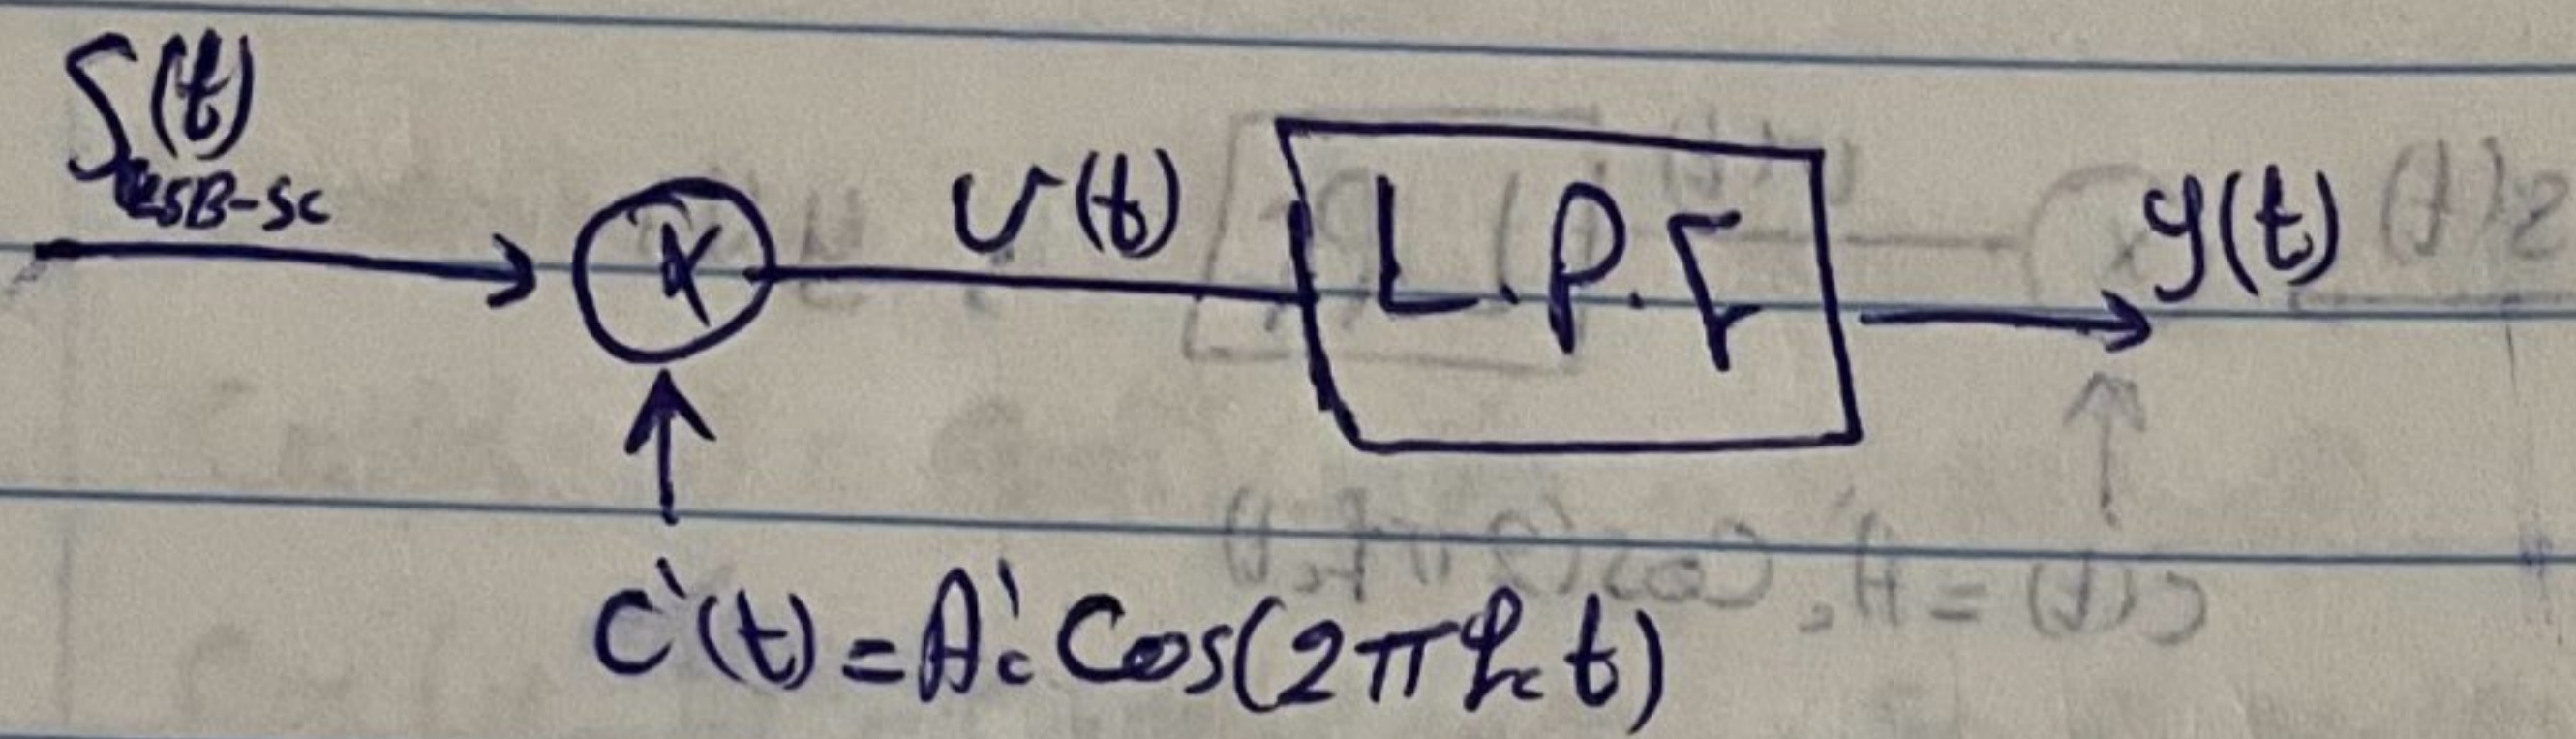 S(t)
v(t)
L.P.F
y(t)
c'(t) = A'c Cos(2πfct)